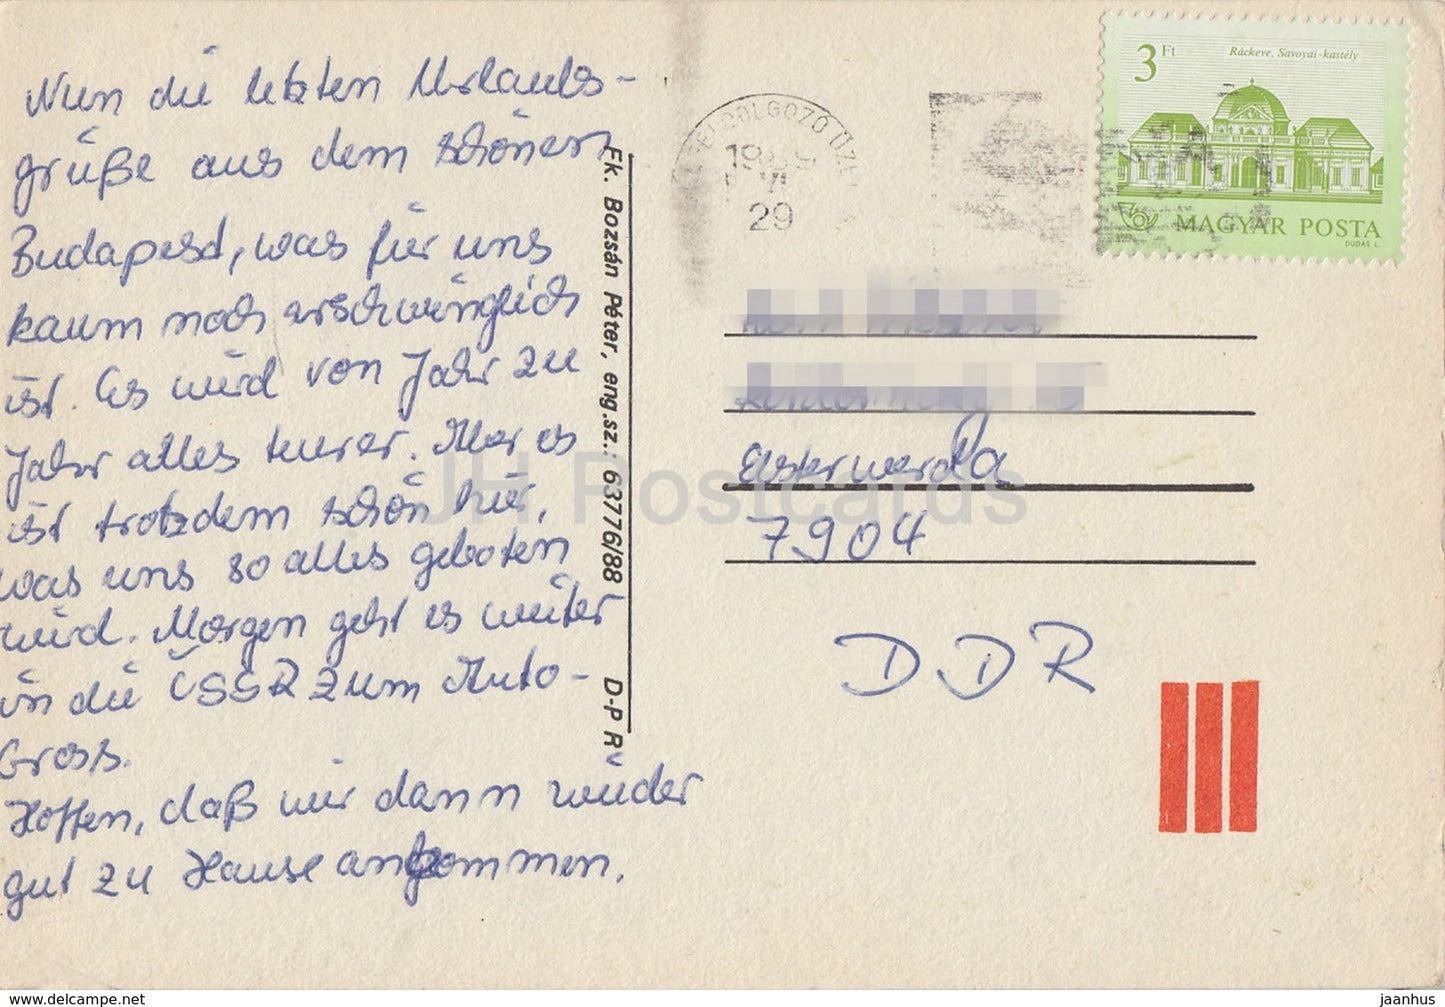 Nun die letzten Urlaubs-
grüße aus dem schönen
Budapesd, was für uns
kaum noch erschwinglich
ist. Es wird von Jahr zu
Jahr alles teurer. Aber es
ist trotzdem schön hier,
was uns so alles geboten
wird. Morgen geht es weiter
in die ČSSR zum Auto-
Cross.
Hoffen, daß wir dann wieder
gut zu Hause ankommen.
Fk. Bozsán Péter, eng.sz.: 63776/88 D-P R
FELDOLGOZÓ ÜZ
29
3 Ft
Ráckeve, Savoyai-kastély
MAGYAR POSTA
DUDÁS L.
Elsterwerda
7904
DDR
JH Postcards
HipPostcard.com
jaanhus